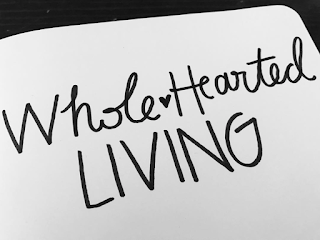 Whole♥Hearted
LIVING